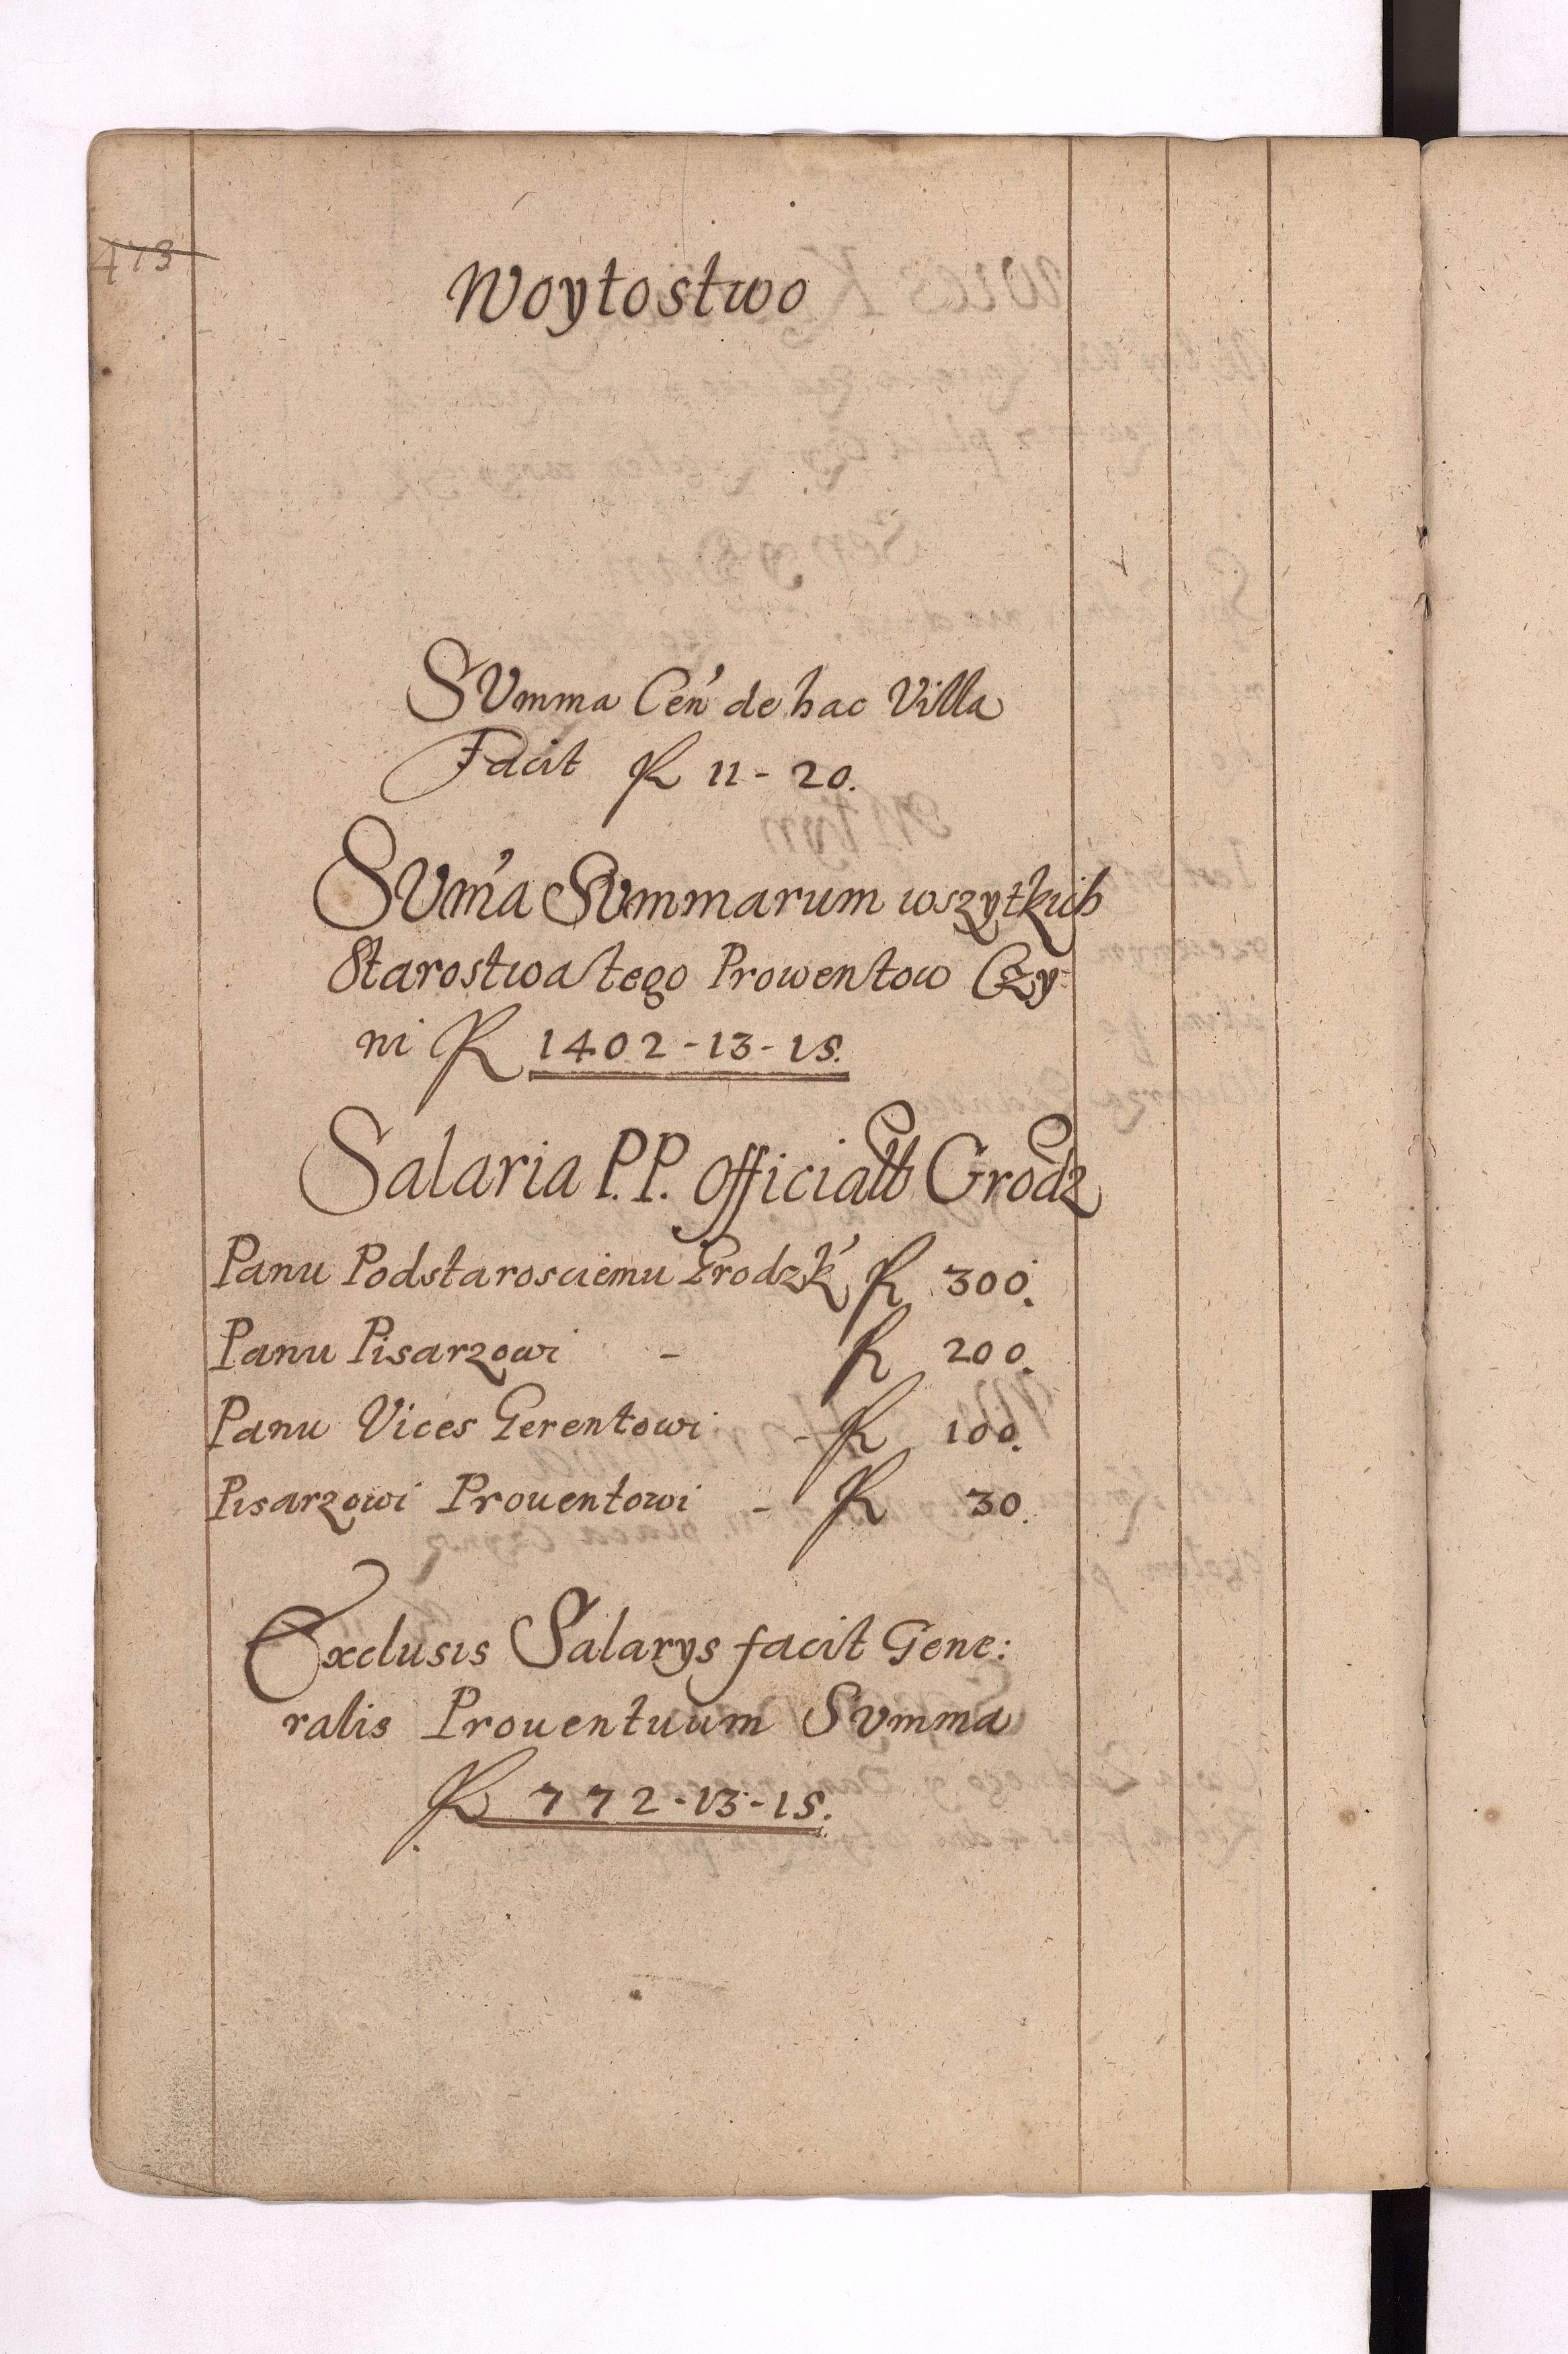 473
Woytostwo
SUmma Cen' de hac Villa
Facit R 11 - 20.
SUm'a SUmmarum wszytkich
Starostwa tego Prowentow Czy-
ni R 1402 - 13 - 15.
Salaria P.P. Officiall Grodz
Panu Podstarosciemu Grodzk' R 300.
Panu Pisarzowi - R 200.
Panu Vices Gerentowi - R 100.
Pisarzowi Prouentowi - R 30.
Exclusis Salarys facit Gene:
ralis Prouentuum SUmma
R 772 - 13 - 15.